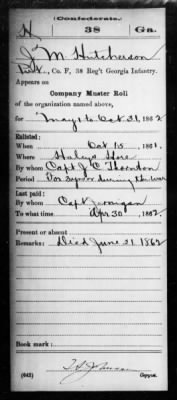 (Confederate.)
H 38 Ga.
J. M. Hutcherson
Pvt., Co. F, 38 Reg't Georgia Infantry.
Appears on
Company Muster Roll
of the organization named above,
for May 1 to Oct 31, 1862
Enlisted:
When Oct 15, 1861.
Where Haleys Store
By whom Capt J. C. Thornton
Period For 3 years or during the war
Last paid:
By whom Capt
To what time Apr 30, 1862.
Present or absent
Remarks: Died June 21 1862
Book mark:
(642) Copyist.